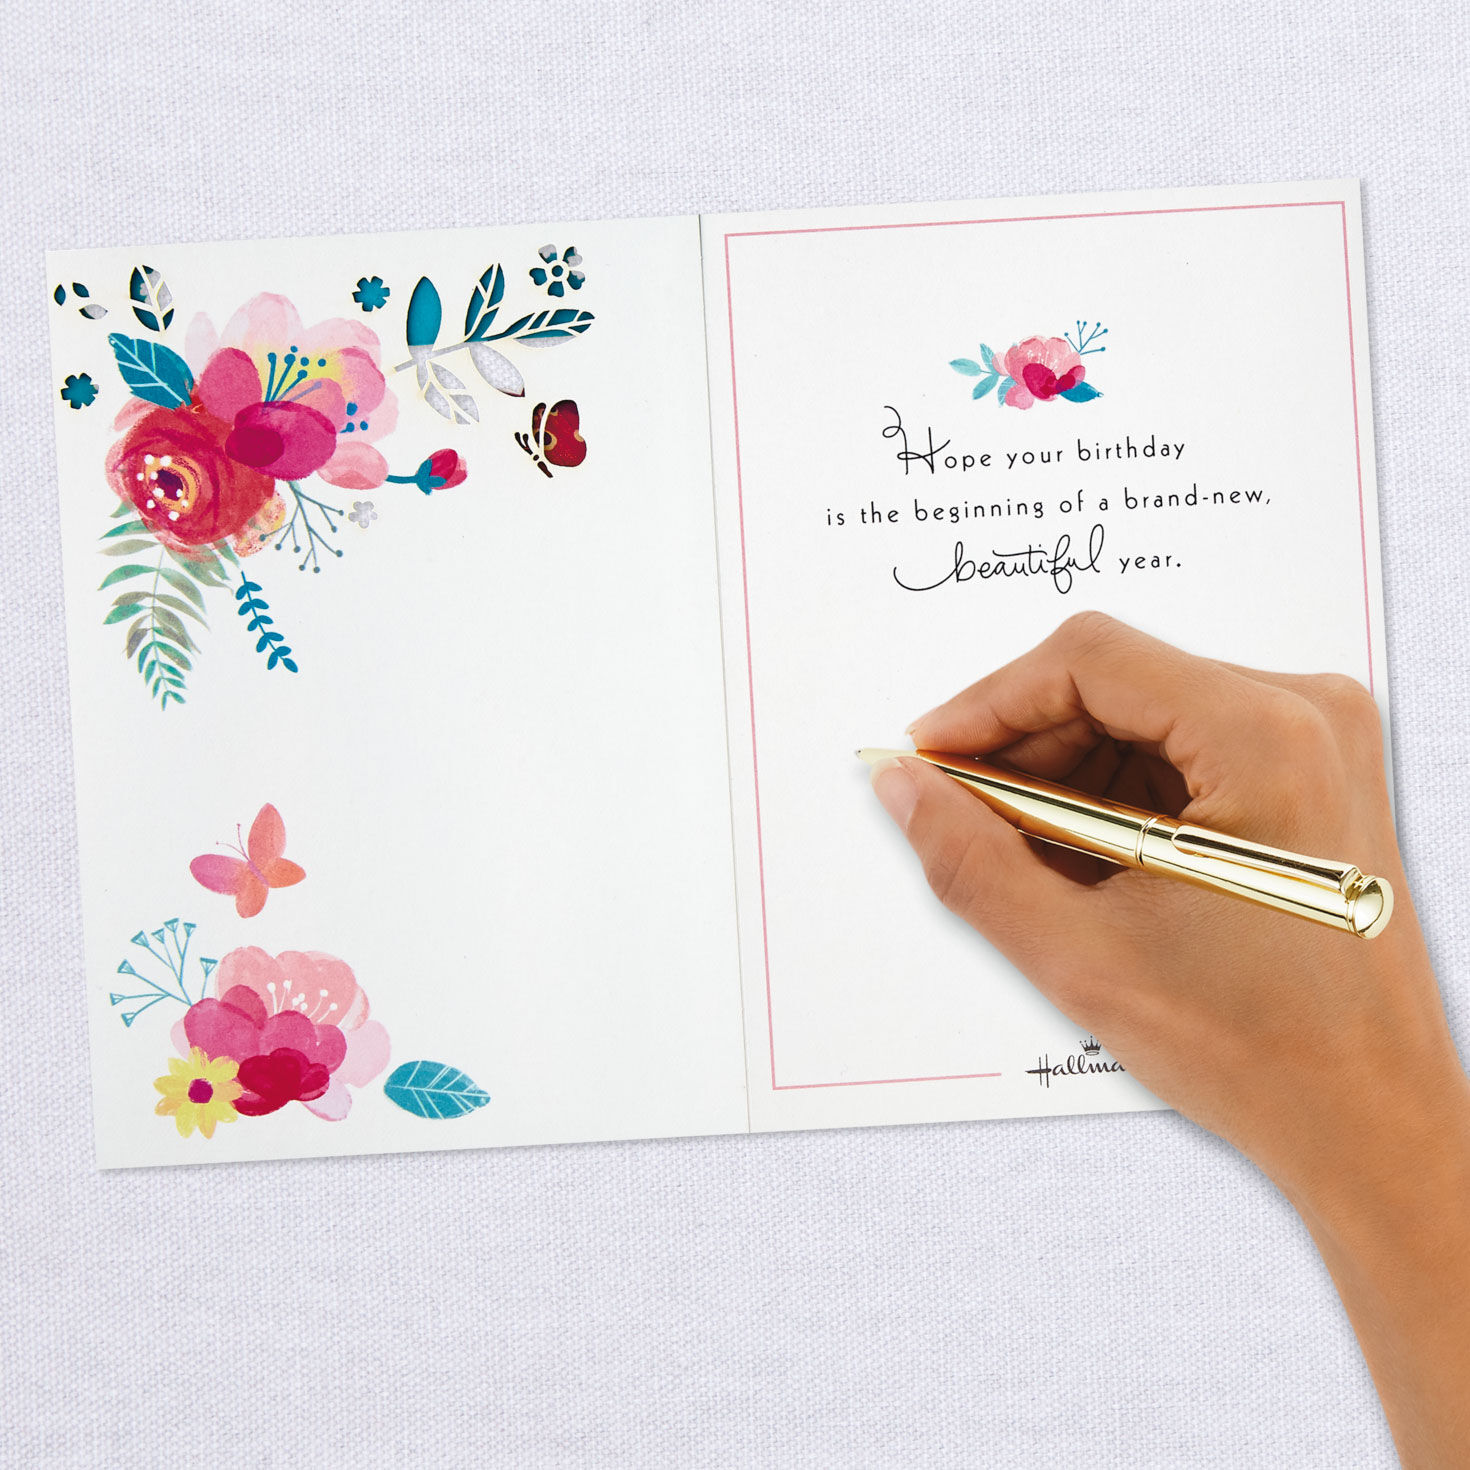 Hope your birthday
is the beginning of a brand-new,
beautiful year.
Hallma